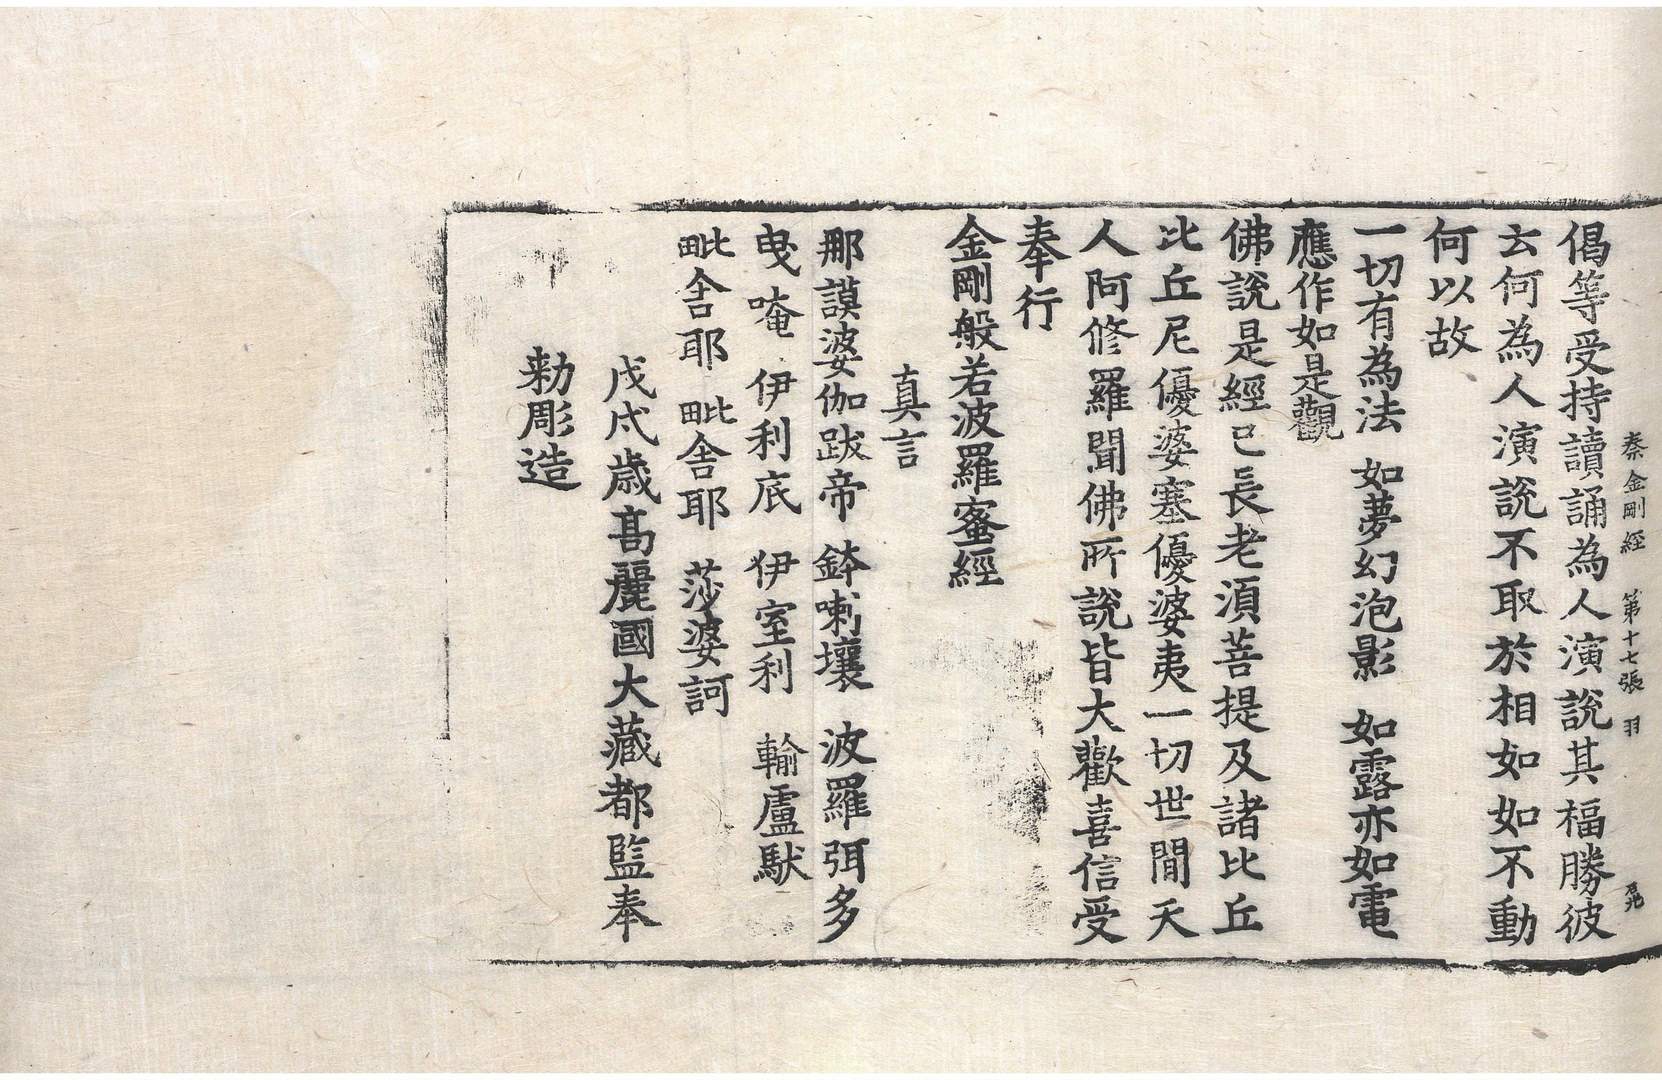 秦金剛經　第十七張　羽
偈等受持讀誦為人演說其福勝彼
云何為人演說不取於相如如不動
何以故
一切有為法　如夢幻泡影　如露亦如電
應作如是觀
佛說是經已長老須菩提及諸比丘
比丘尼優婆塞優婆夷一切世間天
人阿修羅聞佛所說皆大歡喜信受
奉行
金剛般若波羅蜜經
真言
那謨婆伽跋帝　鉢喇壤　波羅弭多
曳唵　伊利底　伊室利　輸盧馱
毗舍耶　毗舍耶　莎婆訶
戊戌歲高麗國大藏都監奉
勑彫造